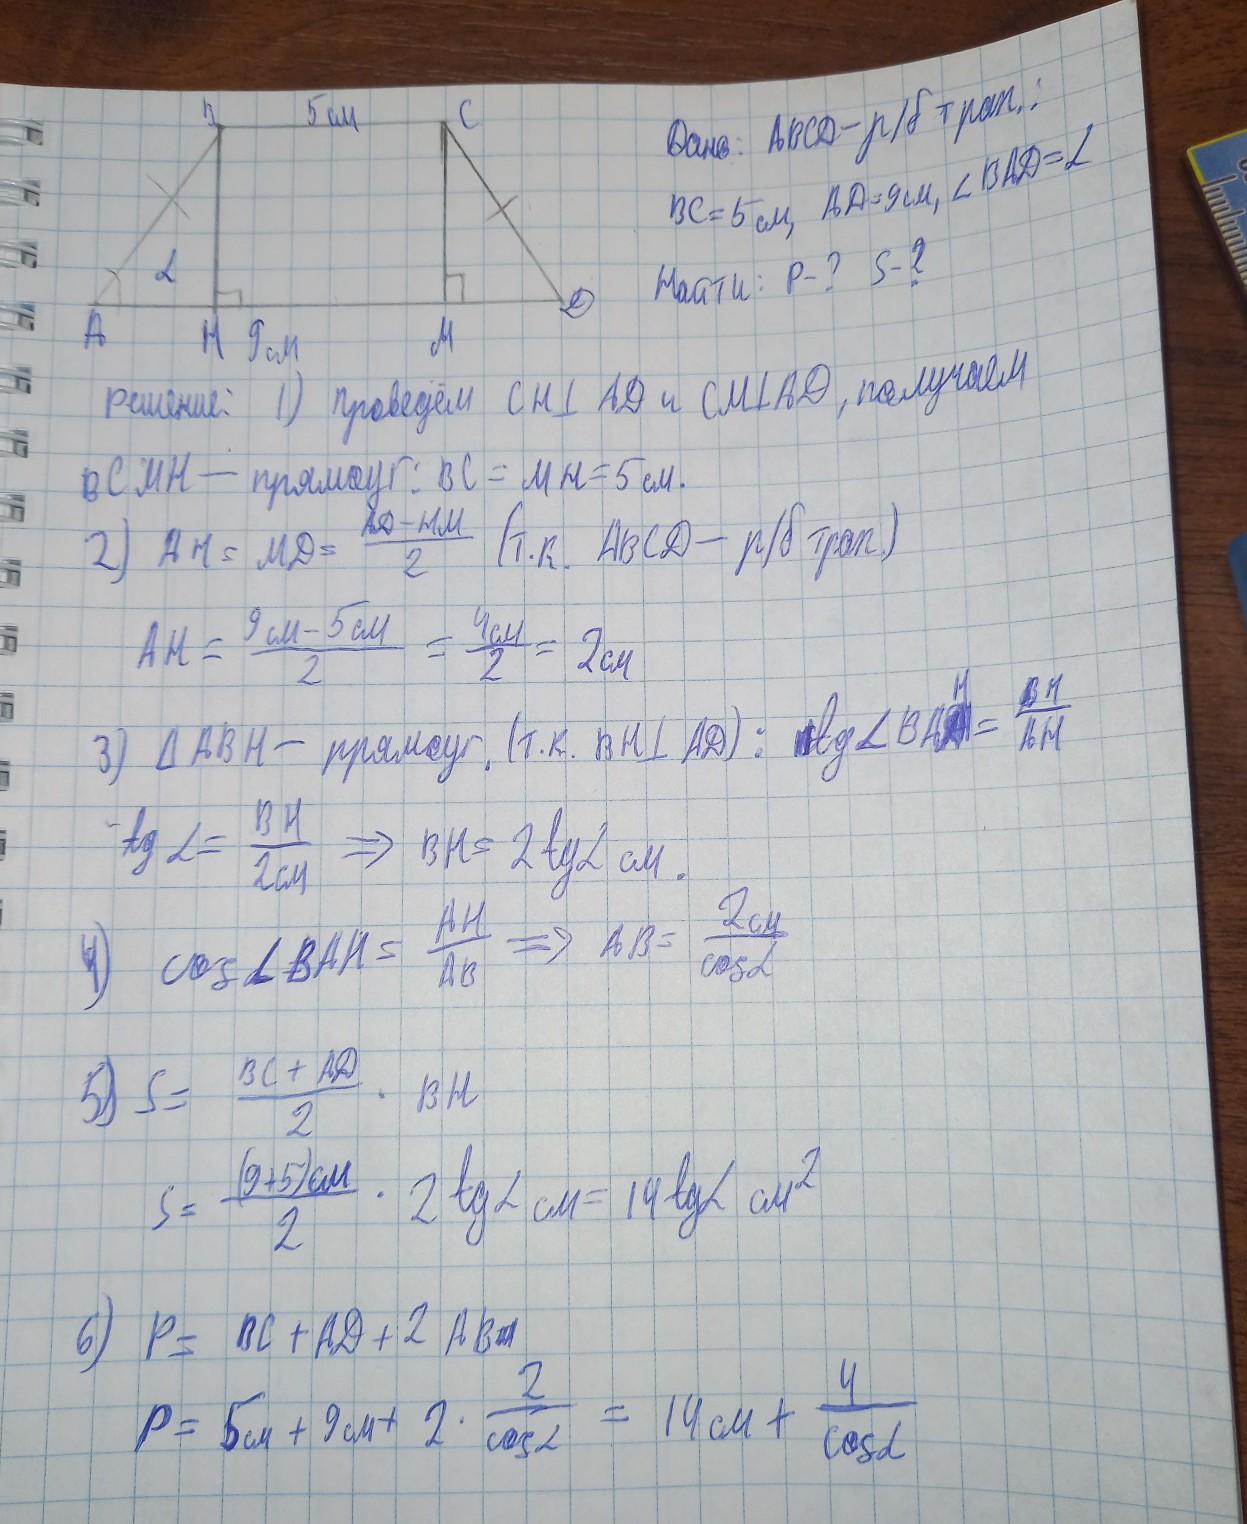 B 5 см C
Дано: ABCD – р/б трап.:
BC = 5 см, AD = 9 см, ∠BAD = α
Найти: P - ? S - ?
α
A H 9 см M D
Решение: 1) проведём CH⊥AD и CM⊥AD, получаем
BCMH – прямоуг.: BC = MH = 5 см.
2) AH = MD = (AD – HM)/2 (т.к. ABCD – р/б трап.)
AH = (9 см – 5 см)/2 = 4 см/2 = 2 см
3) ΔABH – прямоуг. (т.к. BH⊥AD): tg∠BAH = BH/AH
tg α = BH/2 см ⇒ BH = 2 tg α см.
4) cos∠BAH = AH/AB ⇒ AB = 2 см/cos α
5) S = (BC + AD)/2 · BH
S = (9+5) см/2 · 2 tg α см = 14 tg α см²
6) P = BC + AD + 2 AB
P = 5 см + 9 см + 2 · 2/cos α = 14 см + 4/cos α